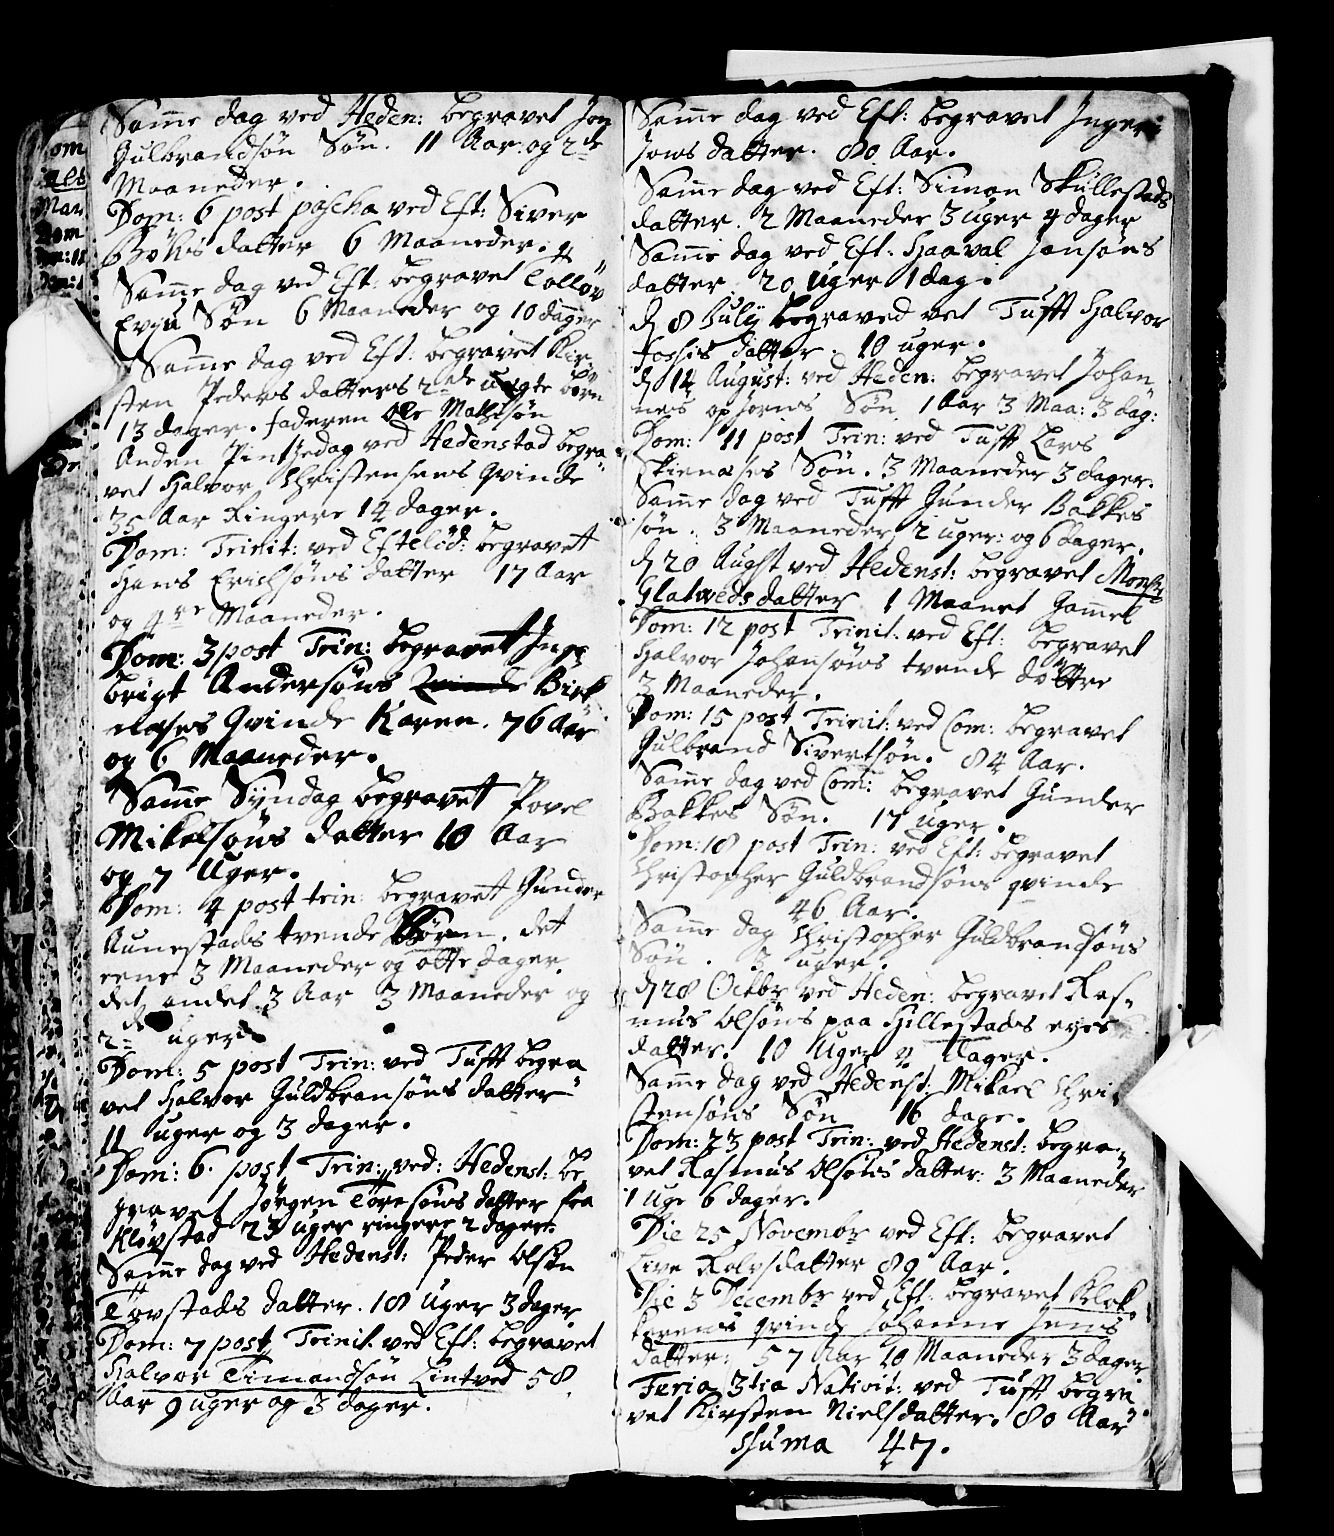 Same dag ved Heden: begravet Jon
Gulbrandsön Sön. 11 Aar. og 2de
Maaneder.
Dom: 6 post pascha ved Eft: Siver
Böhs datter 6 Maaneder. 4
Same dag ved Eft: begravet Tollöv
Evju Sön 6 Maaneder og 10 dager
Same dag ved Eft: begravet Kir-
sten Peders datters 2de uegte börn
13 dager. faderen Ole Mathisön
Anden Pintzedag ved Hedenstad begra-
vet Halvor Christensens Qvinde
35 Aar Ringere 14 dager.
Dom: Trinit: ved Eftelöd: begravet
Hans Erichsöns datter 17 Aar
og 4re Maaneder.
Dom: 3 post Trin: begravet Inge
brigt Andersöns Birk
nesses Qvinde Karen. 76 Aar
og 6 Maaneder.
Same Syndag begravet Povel
Mikelsöns datter 10 Aar
og 7 Uger.
Dom: 4 post trin: begravet Gunder
Aunestads tvende Börn. det
eene 3 Maaneder og otte dager.
det andet 3 Aar 3 Maaneder og
2de uger
Dom: 5 post Trin: ved Tufft begra
vet Halvor Guldbransöns datter
11 uger og 3 dager.
Dom: 6. post Trin: ved: Hedenst: be
gravet Jörgen Toresöns datter fra
Klövstad 23 uger ringere 2 dager.
Same dag ved Hedenst: Peder Olsön
Tövstads datter. 18 Uger 3 dager
Dom: 7 post Trinit. ved Eft: begravet
Halvor Timandsön Lintved 58
Aar 9 uger og 3 dager.
Same dag ved Eft: begravet Inger
Jons datter. 80 Aar.
Same dag ved Eft: Simon Skullestads
datter. 2 Maaneder 3 uger 4 dager
Same dag ved Eft: Haaval Jansöns
datter. 20 Uger 1 dag.
d 8 July begraved vet Tufft Halvor
Fossis datter. 10 uger.
d 14 August: ved Heden: begravet Johan
nes opsjorns Sön 1 Aar 3 Maa: 3 dag:
Dom: 11 post Trin: ved Tufft Lars
Skienases Sön. 3 Maaneder 3 dager.
Same dag ved Tufft Gunder Bakkes
sön. 3 Maaneder 2 uger: og 6 dager.
d 20 Augst ved Hedenst: begravet Monsr
Glatveds datter 1 Maanet Gamel
Dom: 12 post Trinit. ved Eft: begravet
Halvor Johansöns tvende döttre
3 Maaneder.
Dom: 15 post Trinit: ved Com: begravet
Gulbrand Sivertsön. 84 Aar.
Same dag ved Com: begravet Gunder
Bakkes Sön. 17 uger.
Dom: 18 post Trin: ved Eft: begravet
Christopher Guldbrandsöns qvinde
46 Aar.
Same dag Christopher Guldbrandsöns
Sön. 3 uger.
d 28 Octbr ved Heden: begravet Ras-
mus Olsöns paa Hillestads eyes
datter. 10 Uger 4 Dager.
Same dag ved Hedenst: Mikael Chri
stensöns Sön 16 dage.
Dom: 23 post Trin: ved Hedenst: begra-
vet Rasmus Olsöns datter: 3 Maaneder
1 Uge 6 dager.
Die 25 Novembr ved Eft: begravet
Live Rolvsdatter 89 Aar.
Die 3 Decembr ved Eft: begravet Klok-
kerens qvinde Johanne Jens
datter: 57 Aar 10 Maaneder 3 dager
Feria 3tia Nativit: ved Tufft begra
vet Kirsten Nielsdatter. 80 Aar
Suma 47.